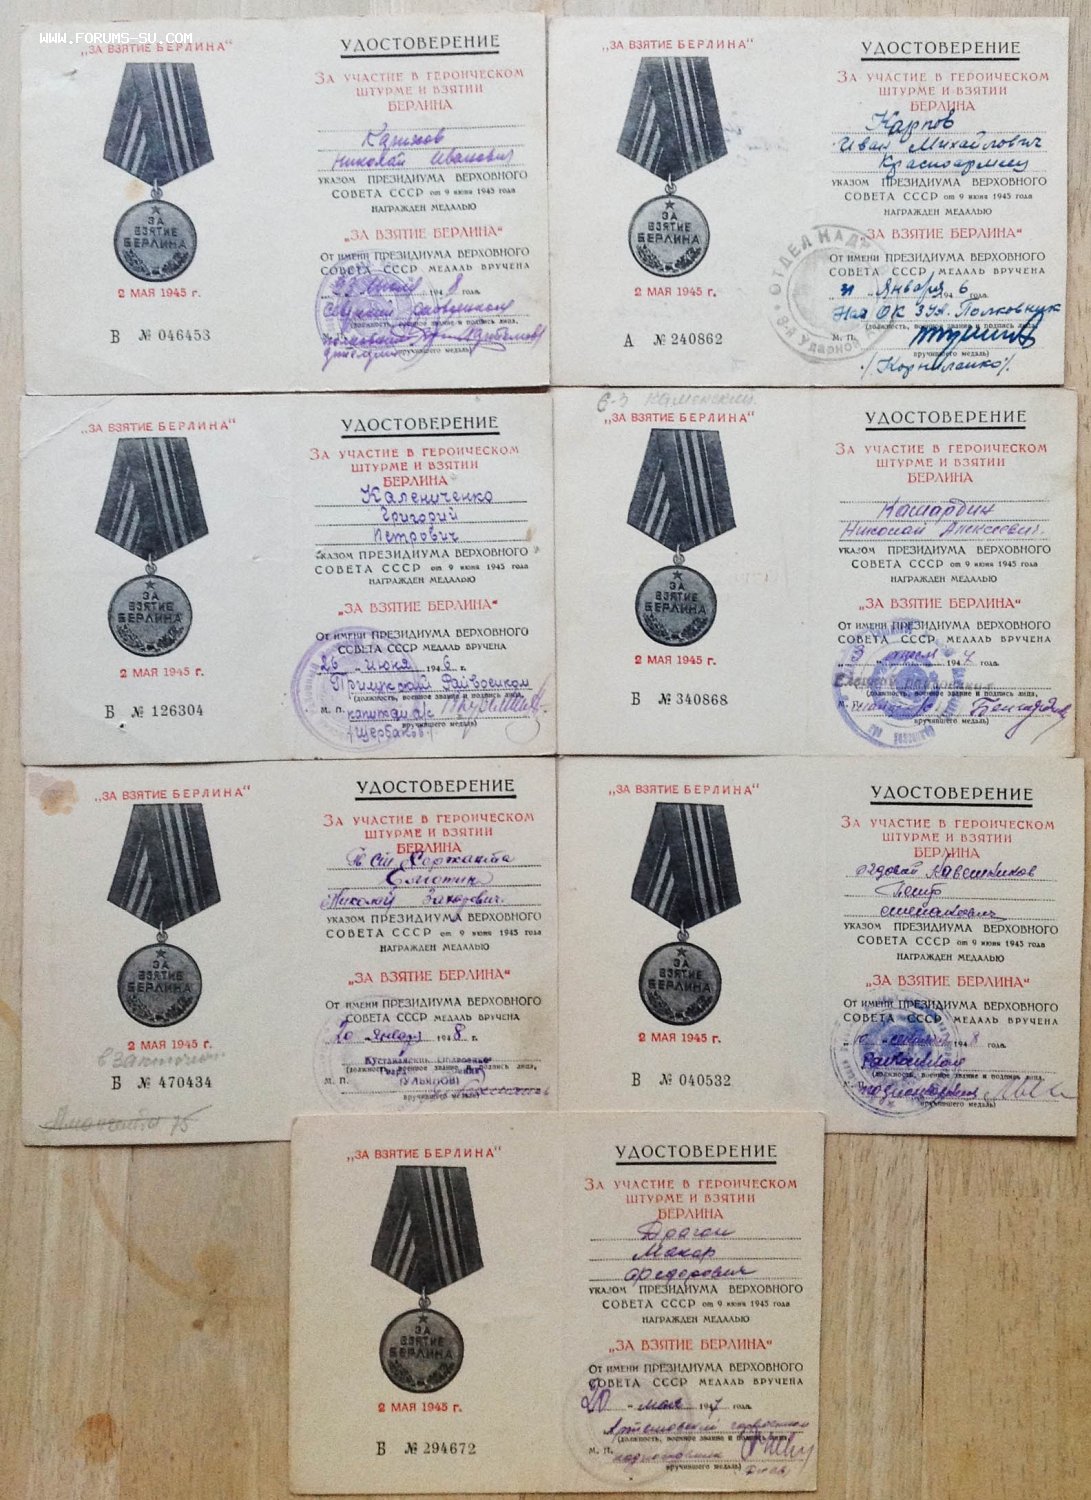 WWW.FORUMS-SU.COM
„ЗА ВЗЯТИЕ БЕРЛИНА“
ЗА
ВЗЯТИЕ
БЕРЛИНА
2 МАЯ 1945 г.
В № 046453
УДОСТОВЕРЕНИЕ
ЗА УЧАСТИЕ В ГЕРОИЧЕСКОМ
ШТУРМЕ И ВЗЯТИИ
БЕРЛИНА
Николай Иванович
УКАЗОМ ПРЕЗИДИУМА ВЕРХОВНОГО
СОВЕТА СССР от 9 июня 1945 года
НАГРАЖДЕН МЕДАЛЬЮ
„ЗА ВЗЯТИЕ БЕРЛИНА“
ОТ ИМЕНИ ПРЕЗИДИУМА ВЕРХОВНОГО
СОВЕТА СССР МЕДАЛЬ ВРУЧЕНА
194 8 года.
(должность, военное звание и подпись лица,
М. П.
вручившего медаль)
„ЗА ВЗЯТИЕ БЕРЛИНА“
ЗА
ВЗЯТИЕ
БЕРЛИНА
2 МАЯ 1945 г.
А № 240862
УДОСТОВЕРЕНИЕ
ЗА УЧАСТИЕ В ГЕРОИЧЕСКОМ
ШТУРМЕ И ВЗЯТИИ
БЕРЛИНА
Карпов
Иван Михайлович
Красноармеец
УКАЗОМ ПРЕЗИДИУМА ВЕРХОВНОГО
СОВЕТА СССР от 9 июня 1945 года
НАГРАЖДЕН МЕДАЛЬЮ
„ЗА ВЗЯТИЕ БЕРЛИНА“
ОТ ИМЕНИ ПРЕЗИДИУМА ВЕРХОВНОГО
СОВЕТА СССР МЕДАЛЬ ВРУЧЕНА
Января 194 6 года.
Нач ОК 3 УА. Полковник
(должность, военное звание и подпись лица,
М. П.
вручившего медаль)
/Корниленко/.
„ЗА ВЗЯТИЕ БЕРЛИНА“
ЗА
ВЗЯТИЕ
БЕРЛИНА
2 МАЯ 1945 г.
Б № 126304
УДОСТОВЕРЕНИЕ
ЗА УЧАСТИЕ В ГЕРОИЧЕСКОМ
ШТУРМЕ И ВЗЯТИИ
БЕРЛИНА
Калениченко
Григорий
Петрович
УКАЗОМ ПРЕЗИДИУМА ВЕРХОВНОГО
СОВЕТА СССР от 9 июня 1945 года
НАГРАЖДЕН МЕДАЛЬЮ
„ЗА ВЗЯТИЕ БЕРЛИНА“
ОТ ИМЕНИ ПРЕЗИДИУМА ВЕРХОВНОГО
СОВЕТА СССР МЕДАЛЬ ВРУЧЕНА
26 июня 194 6 г.
Прилукский Райвоенком
(должность, военное звание и подпись лица,
М. П. капитан а/с
вручившего медаль)
/Щербаков/
„ЗА ВЗЯТИЕ БЕРЛИНА“
ЗА
ВЗЯТИЕ
БЕРЛИНА
2 МАЯ 1945 г.
Б № 340868
УДОСТОВЕРЕНИЕ
ЗА УЧАСТИЕ В ГЕРОИЧЕСКОМ
ШТУРМЕ И ВЗЯТИИ
БЕРЛИНА
Кашардин
Николай Алексеевич
УКАЗОМ ПРЕЗИДИУМА ВЕРХОВНОГО
СОВЕТА СССР от 9 июня 1945 года
НАГРАЖДЕН МЕДАЛЬЮ
„ЗА ВЗЯТИЕ БЕРЛИНА“
ОТ ИМЕНИ ПРЕЗИДИУМА ВЕРХОВНОГО
СОВЕТА СССР МЕДАЛЬ ВРУЧЕНА
3 194 7 года.
(должность, военное звание и подпись лица,
М.
вручившего медаль)
„ЗА ВЗЯТИЕ БЕРЛИНА“
ЗА
ВЗЯТИЕ
БЕРЛИНА
2 МАЯ 1945 г.
Б № 470434
УДОСТОВЕРЕНИЕ
ЗА УЧАСТИЕ В ГЕРОИЧЕСКОМ
ШТУРМЕ И ВЗЯТИИ
БЕРЛИНА
Николай Захарович.
УКАЗОМ ПРЕЗИДИУМА ВЕРХОВНОГО
СОВЕТА СССР от 9 июня 1945 года
НАГРАЖДЕН МЕДАЛЬЮ
„ЗА ВЗЯТИЕ БЕРЛИНА“
ОТ ИМЕНИ ПРЕЗИДИУМА ВЕРХОВНОГО
СОВЕТА СССР МЕДАЛЬ ВРУЧЕНА
20 Января 194 8. г.
(должность, военное звание и подпись лица,
М. П.
вручившего медаль)
„ЗА ВЗЯТИЕ БЕРЛИНА“
ЗА
ВЗЯТИЕ
БЕРЛИНА
2 МАЯ 1945 г.
В № 040532
УДОСТОВЕРЕНИЕ
ЗА УЧАСТИЕ В ГЕРОИЧЕСКОМ
ШТУРМЕ И ВЗЯТИИ
БЕРЛИНА
Петр
УКАЗОМ ПРЕЗИДИУМА ВЕРХОВНОГО
СОВЕТА СССР от 9 июня 1945 года
НАГРАЖДЕН МЕДАЛЬЮ
„ЗА ВЗЯТИЕ БЕРЛИНА“
ОТ ИМЕНИ ПРЕЗИДИУМА ВЕРХОВНОГО
СОВЕТА СССР МЕДАЛЬ ВРУЧЕНА
194 8 года.
(должность, военное звание и подпись лица,
М. П.
вручившего медаль)
„ЗА ВЗЯТИЕ БЕРЛИНА“
ЗА
ВЗЯТИЕ
БЕРЛИНА
2 МАЯ 1945 г.
Б № 294672
УДОСТОВЕРЕНИЕ
ЗА УЧАСТИЕ В ГЕРОИЧЕСКОМ
ШТУРМЕ И ВЗЯТИИ
БЕРЛИНА
Драган
Макар
Федорович
УКАЗОМ ПРЕЗИДИУМА ВЕРХОВНОГО
СОВЕТА СССР от 9 июня 1945 года
НАГРАЖДЕН МЕДАЛЬЮ
„ЗА ВЗЯТИЕ БЕРЛИНА“
ОТ ИМЕНИ ПРЕЗИДИУМА ВЕРХОВНОГО
СОВЕТА СССР МЕДАЛЬ ВРУЧЕНА
20 мая 194 7 года.
Артемовский горвоенком
(должность, военное звание и подпись лица,
М. П. подполковник
вручившего медаль)